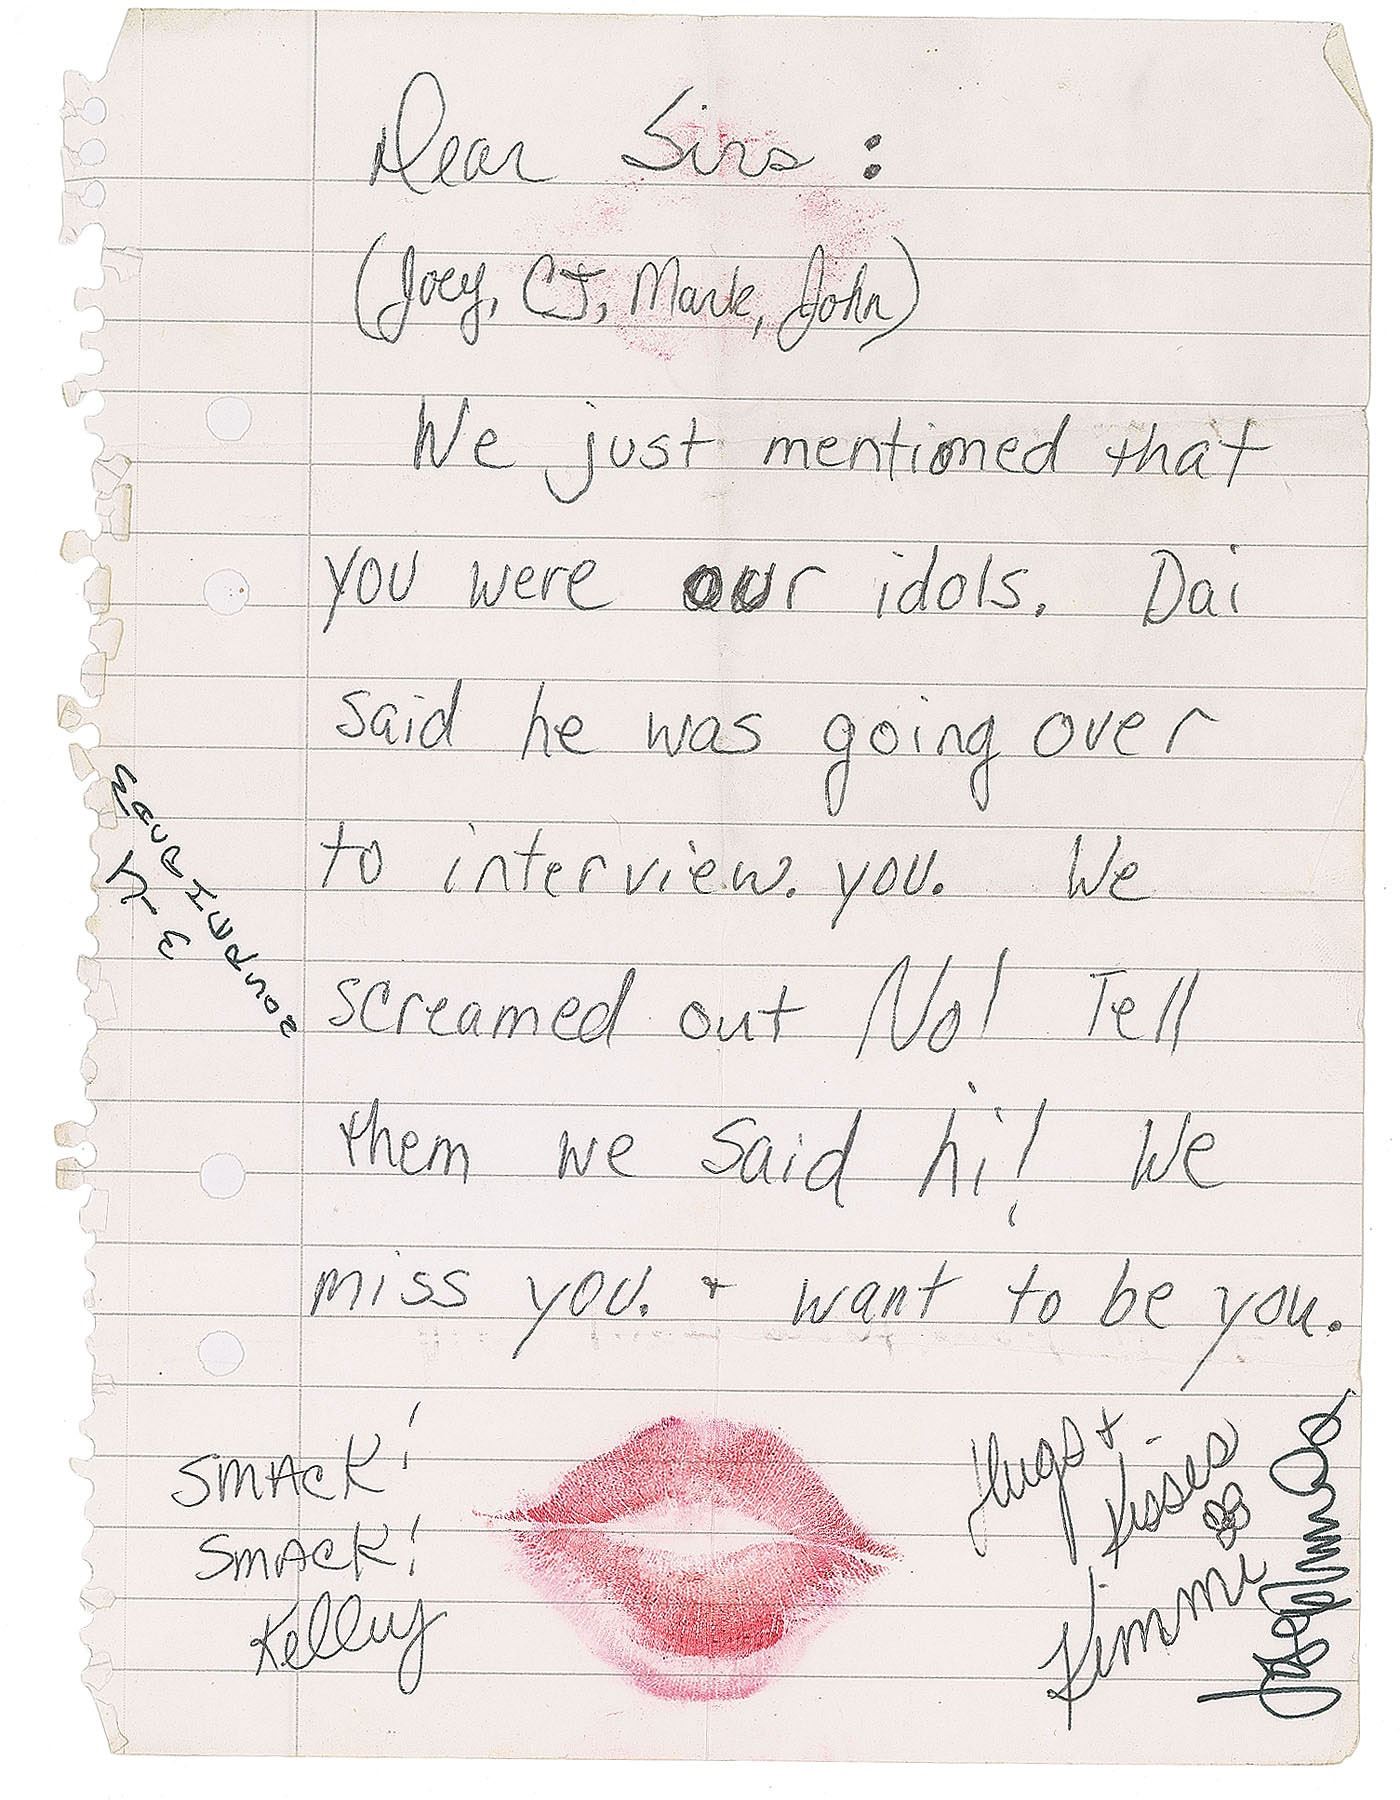 Dear Sirs:
(Joey, CJ, Mark, John)
We just mentioned that
you were our idols. Dai
said he was going over
to interview. you. We
screamed out No! Tell
them we said hi! We
miss you. + want to be you.
SMACK!
SMACK!
Kelley
Hugs +
Kisses
Kimmi